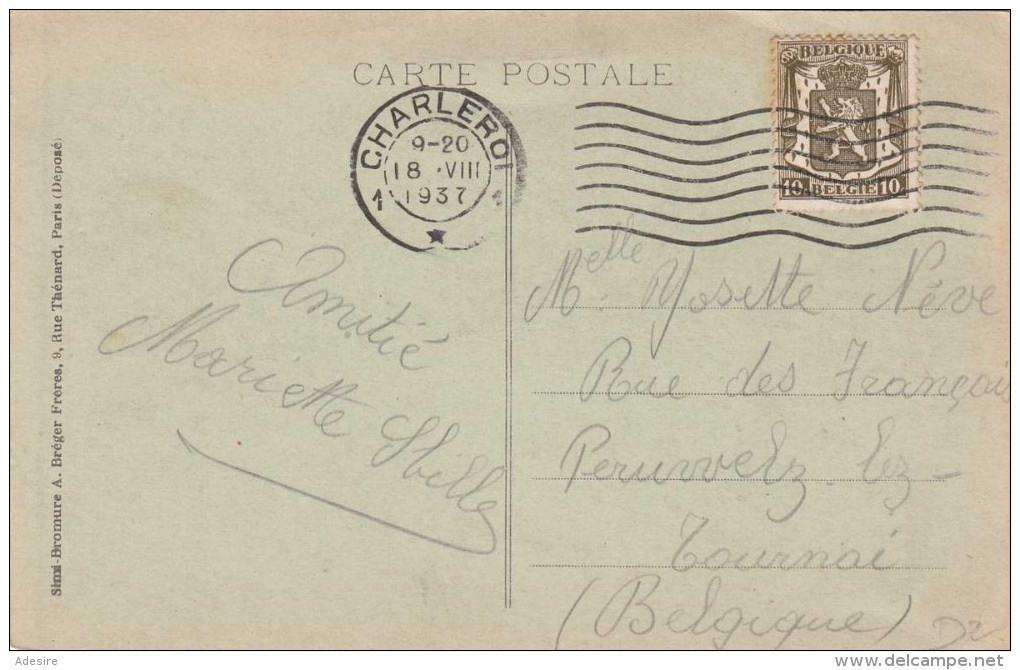 CARTE POSTALE
BELGIQUE
10 BELGIE 10
CHARLEROI
9-20
18 VIII
1937
1 1
Melle. Yosette Nève
Rue des Français
Peruwelz. lez-
Tournai
(Belgique)
Amitié
Mariette
Simi-Bromure A. Bréger Frères, 9, Rue Thénard, Paris (Déposé)
Adesire
www.delcampe.net